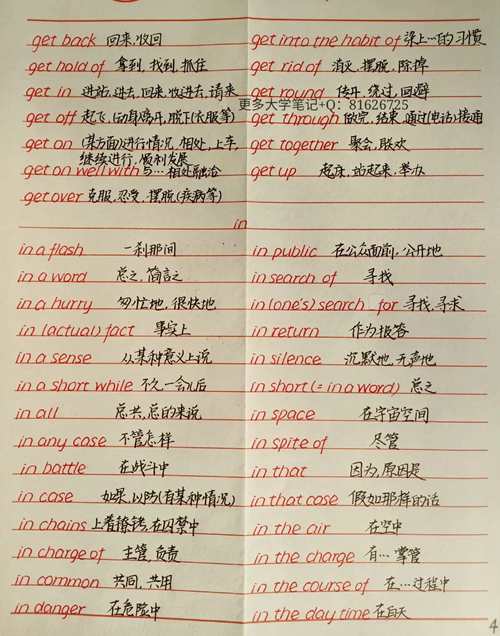 get back 回来,收回
get hold of 拿到,找到,抓住
get in 进站,进去,回来,收进去,请来
get off 起飞,(动身)离开,脱下(衣服等)
get on (某方面)进行情况,相处,上车,
继续进行,顺利发展
get on well with 与…相处融洽
get over 克服,忍受,摆脱(疾病等)
get into the habit of 染上…的习惯
get rid of 消灭,摆脱,除掉
get round 传开,绕过,回避
更多大学笔记+Q: 81626725
get through 做完,结束,通过(电话)接通
get together 聚会,联欢
get up 起床,站起来,举办
in
in a flash 一刹那间
in a word 总之,简言之
in a hurry 匆忙地,很快地
in (actual) fact 事实上
in a sense 从某种意义上说
in a short while 不久,一会儿后
in all 总共,总的来说
in any case 不管怎样
in battle 在战斗中
in case 如果,以防(有某种情况)
in chains 上着镣铐,在囚禁中
in charge of 主管,负责
in common 共同,共用
in danger 在危险中
in public 在公众面前,公开地
in search of 寻找
in (one's) search for 寻找,寻求
in return 作为报答
in silence 沉默地,无声地
in short (= in a word) 总之
in space 在宇宙空间
in spite of 尽管
in that 因为,原因是
in that case 假如那样的话
in the air 在空中
in the charge 有…掌管
in the course of 在…过程中
in the day time 在白天
4